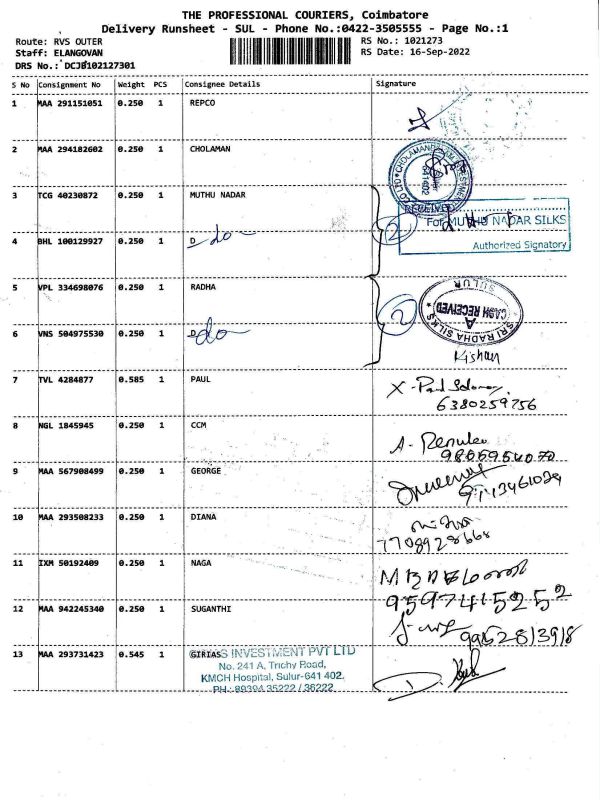 THE PROFESSIONAL COURIERS, Coimbatore
Delivery Runsheet - SUL - Phone No.:0422-3505555 - Page No.:1
Route: RVS OUTER
RS No.: 1021273
Staff: ELANGOVAN
RS Date: 16-Sep-2022
DRS No.: DCJB102127301
S No Consignment No Weight PCS Consignee Details Signature
1 MAA 291151051 0.250 1 REPCO
2 MAA 294182602 0.250 1 CHOLAMAN
RECEIVED
3 TCG 40230872 0.250 1 MUTHU NADAR
2
For MUTHU NADAR SILKS
Authorized Signatory
4 BHL 100129927 0.250 1 D do
5 VPL 334698076 0.250 1 RADHA
2
SRI RADHA SILKS
CASH RECEIVED
SULUR
6 VNS 504975530 0.250 1 D do
Kishan
7 TVL 4284877 0.585 1 PAUL
6380259756
8 NGL 1845945 0.250 1 CCM
9 MAA 567908499 0.250 1 GEORGE
10 MAA 293508233 0.250 1 DIANA
7708928668
11 IXM 50192409 0.250 1 NAGA
9597415252
12 MAA 942245340 0.250 1 SUGANTHI
9952813918
13 MAA 293731423 0.545 1 GIRIAS
INVESTMENT PVT LTD
No. 241 A, Trichy Road,
KMCH Hospital, Sulur-641 402.
PH.: 89394 35222 / 36222